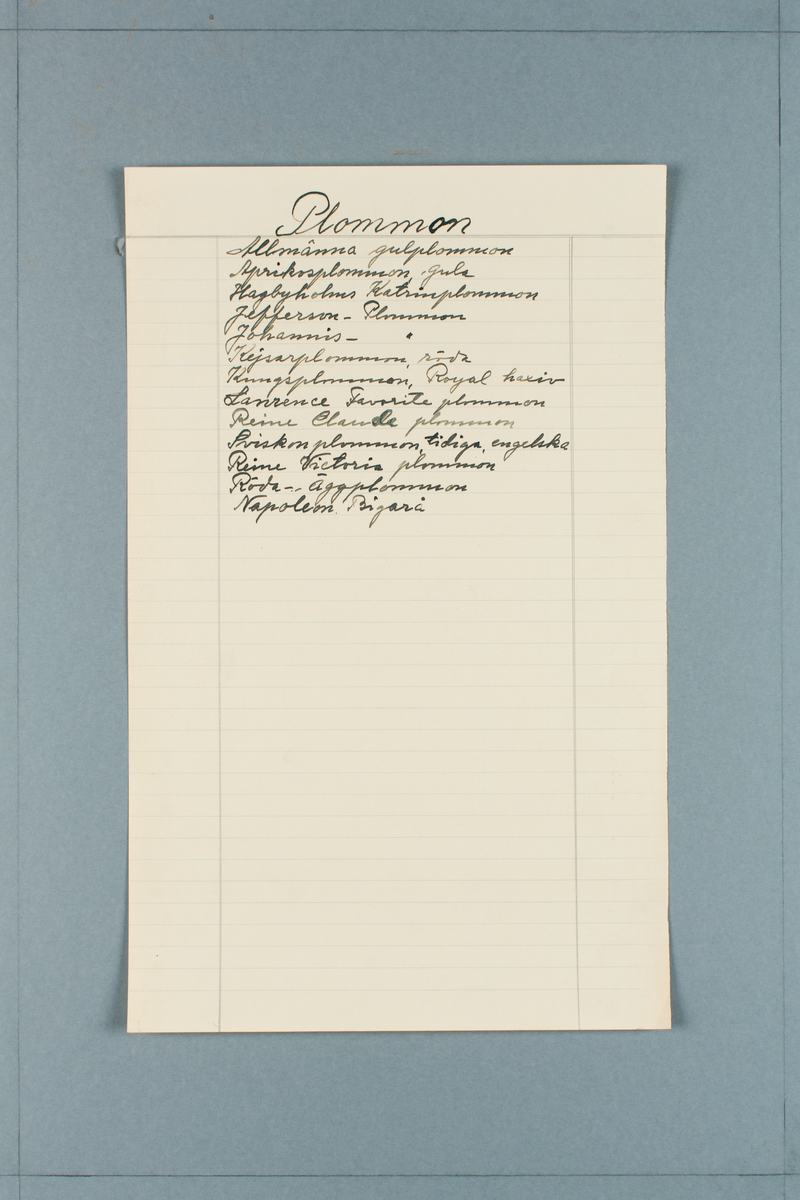 Plommon
Allmänna gulplommon
Aprikosplommon, gula
Hagbyholms Katrinplommon
Jefferson - Plommon
Johannis - "
Kejsarplommon, röda
Kungsplommon, Royal hativ
Lanrence Favorite plommon
Reine Claude plommon
Sviskonplommon, tidiga, engelska
Reine Victoria plommon
Röda - Äggplommon
Napoleon. Bigarå